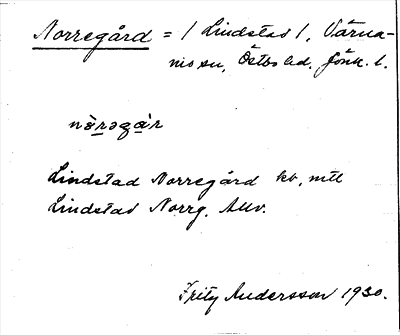 Norregård = / Lindstad /, Värna-
mo sn, Östbo hd. Jönk. l.
nòrəgàr
Lindstad Norregård kb, mtl
Lindstad Norrg. Allv.
Fritz Andersson 1930.